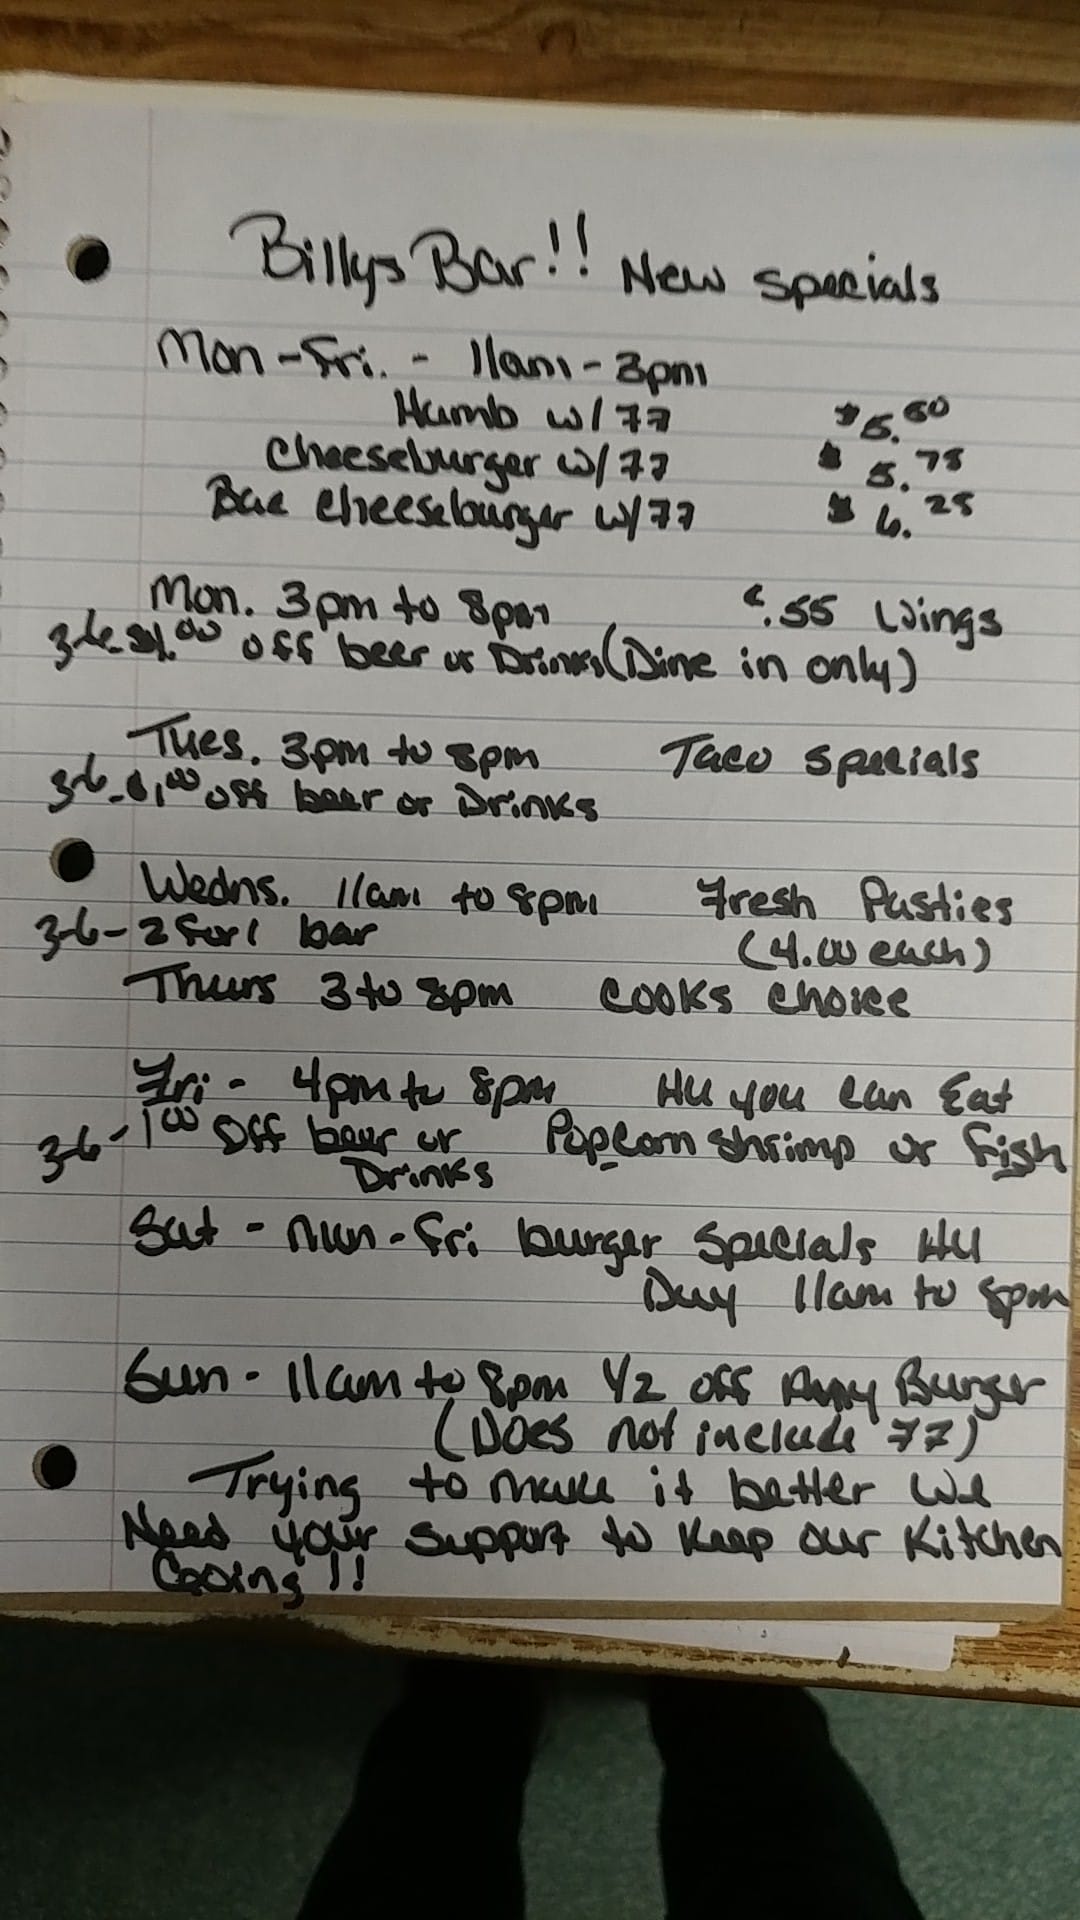 Billys Bar!! New specials
Mon-Fri. - 11am-3pm
Hamb w/ FF $5.50
Cheeseburger w/ FF $5.75
Bac Cheeseburger w/FF $6.25
Mon. 3pm to 8pm ¢.55 Wings
3-6-$1.00 off beer or Drinks (Dine in only)
Tues. 3pm to 8pm Taco specials
3-6-$1.00 off beer or Drinks
Wedns. 11am to 8pm Fresh Pasties
3-6-2 for 1 bar (4.00 each)
Thurs 3 to 8pm Cooks Choice
Fri - 4pm to 8pm All you Can Eat
3-6-1.00 Off beer or Popcorn Shrimp or Fish
Drinks
Sat - Mon-Fri burger Specials All
Day 11am to 8pm
Sun - 11am to 8pm 1/2 off Any Burger
(Does not include FF)
Trying to make it better We
Need your Support to Keep our Kitchen
Going!!